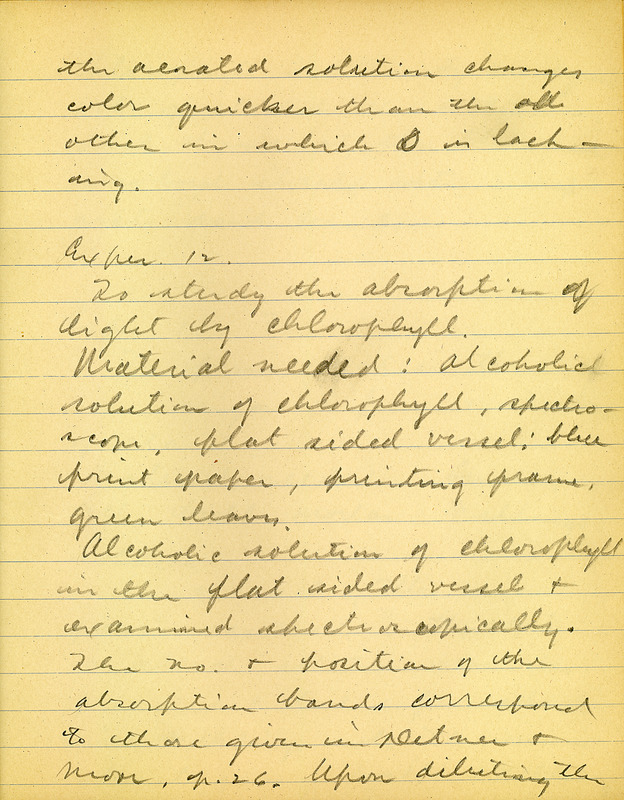 the aerated solution changes
color quicker than the
other in which O is lack-
ing.
Exper. 12.
To study the absorption of
light by chlorophyll.
Material needed: alcoholic
solution of chlorophyll, spectro-
scope, flat sided vessel; blue
print paper, printing frame,
green leaves.
Alcoholic solution of chlorophyll
in the flat sided vessel +
examined spectroscopically.
The no. + position of the
absorption bands correspond
to those given in Detmer +
Moor, p. 26. Upon diluting the